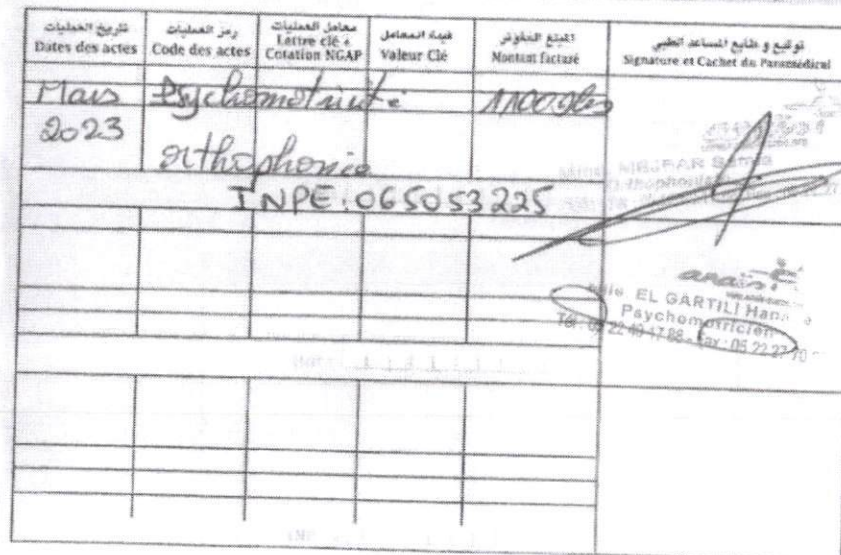 تاريخ العمليات
Dates des actes
رمز العمليات
Code des actes
معامل العمليات
Lettre clé +
Cotation NGAP
قيمة المعامل
Valeur Clé
المبلغ المفوتر
Montant facturé
توقيع و طابع المساعد الطبي
Signature et Cachet du Paramédical
Mars Psychomotricité 1100
2023
orthophonie
INPE: 065053225
MEJRAR
Orthophoniste
anaïs
EL GARTILI
Psychomotricien
Fax: 05 22 27 70